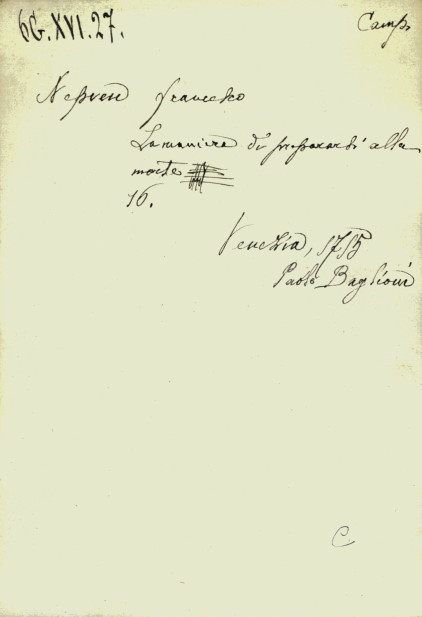 6G.XVI.27.
Camp.
Nepveu Francesco
La maniera di prepararsi alla
morte
16.
Venezia, 1715
Paolo Baglioni
C